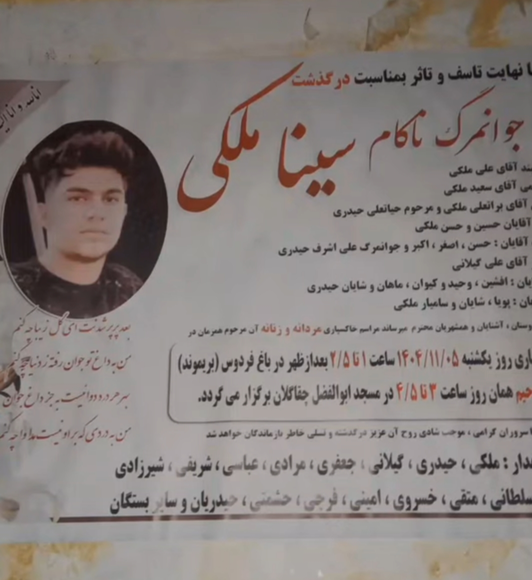 انالله و اناالیه
با نهایت تاسف و تاثر بمناسبت درگذشت
جوانمرگ ناکام سینا ملکی
آقای علی ملکی
آقای سعید ملکی
آقای براتعلی ملکی و مرحوم حیاتعلی حیدری
آقایان حسین و حسن ملکی
آقایان : حسن ، اصغر ، اکبر و جوانمرگ علی اشرف حیدری
آقای علی گیلانی
افشین ، وحید و کیوان ، ماهان و شایان حیدری
پویا ، شایان و سامیار ملکی
آشنایان و همشهریان محترم میرساند مراسم خاکسپاری مردانه و زنانه آن مرحوم همزمان در
روز یکشنبه ۱۴۰۴/۱۱/۰۵ ساعت ۱ تا ۲/۵ بعدازظهر در باغ فردوس (بریموند)
همان روز ساعت ۳ تا ۴/۵ در مسجد ابوالفضل چقاگلان برگزار می گردد.
سروران گرامی ، موجب شادی روح آن عزیز درگذشته و تسلی خاطر بازماندگان خواهد شد
ملکی ، حیدری ، گیلانی ، جعفری ، مرادی ، عباسی ، شریفی ، شیرزادی
سلطانی ، متقی ، خسروی ، امینی ، فرجی ، حشمتی ، حیدریان و سایر بستگان
بعد پرپر شدنت ای گل زیبا چه کنم
من به داغ تو جوان رفته ز دنیا چه کنم
بهر هر درد دوائیست به جز داغ جوان
من به دردی که بر او نیست مداوا چه کنم